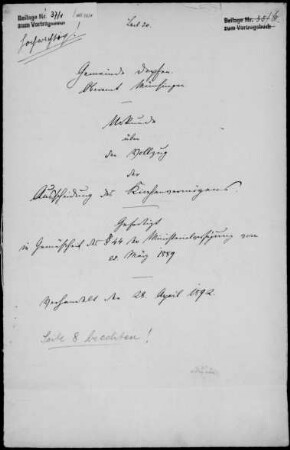 Beilage Nr. 37/1
zum Vortragsbuch
Beilage Nr.
zum Vortragsbuch
Gemeinde
Oberamt Münsingen
Urkunde
über
den Vollzug
der
Ausscheidung des Kirchenvermögens.
Gefertigt
in Gemäßheit des § 44 der Ministerialverfügung vom
März 1889
Verhandelt den 28. April 1892.
Seite 8 beachten!